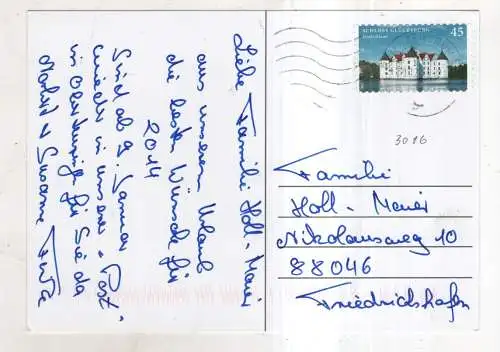 Liebe Familie Holl-Meier
aus unserem Urlaub
die besten Wünsche für
2014
Sind ab 9. Januar
wieder in unserer "Post-
für Sie da
Susanne
SCHLOSS GLÜCKSBURG
45
3086
Familie
Holl-Meier
Nikolausweg 10
88046
Friedrichshafen